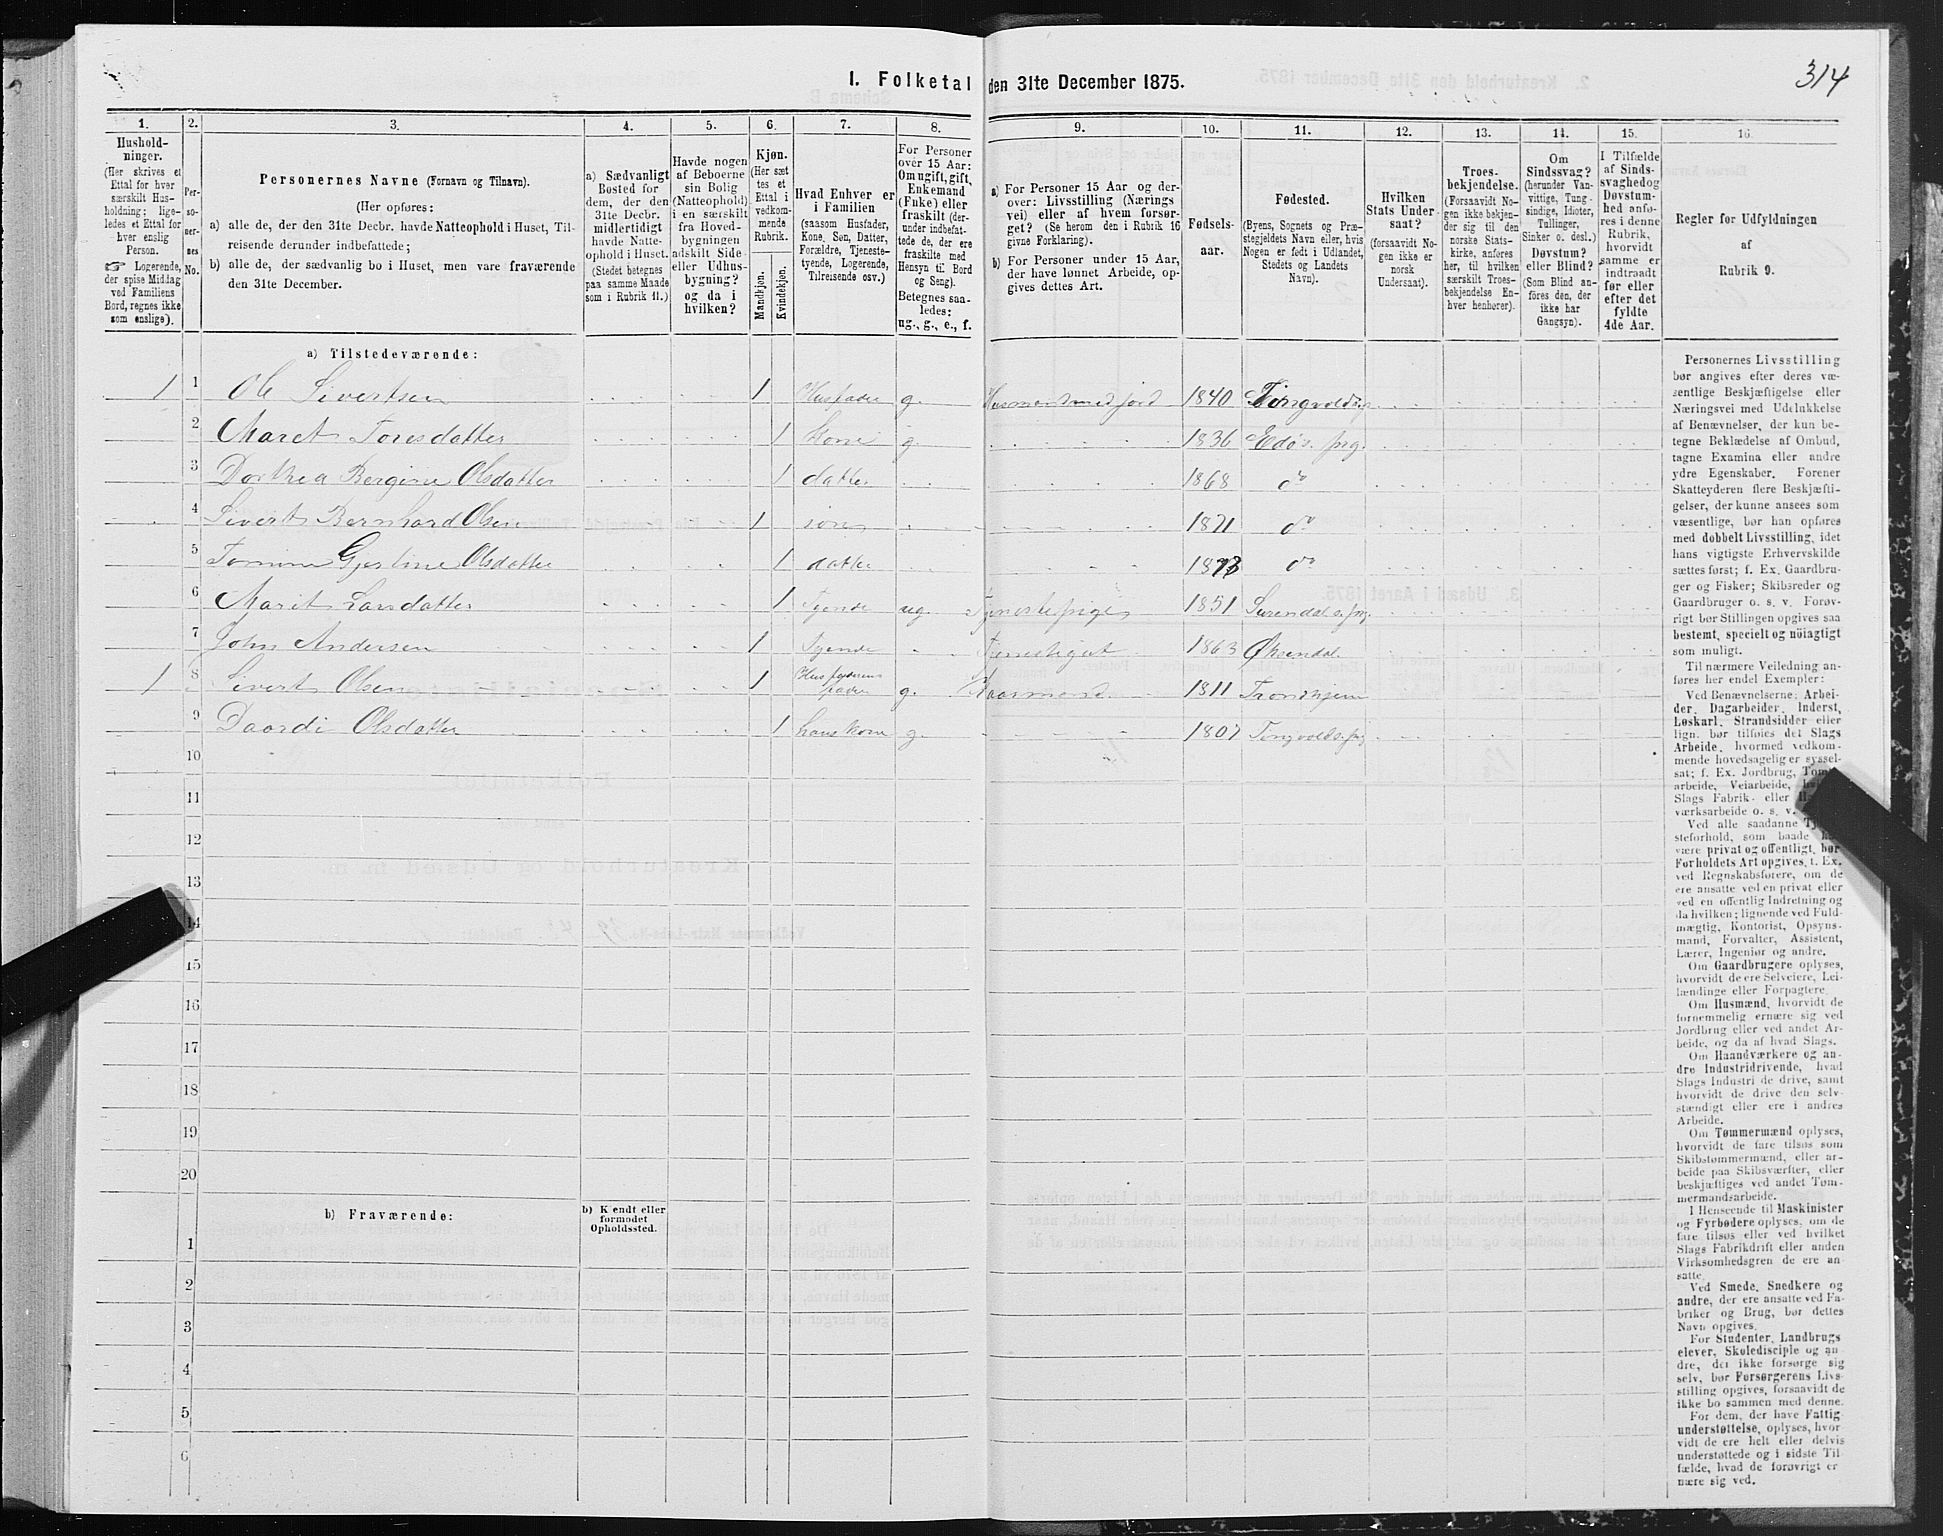 314
I. Folketal den 31te December 1875.
1. 2. 3. 4. 5. 6. 7. 8. 9. 10. 11. 12. 13. 14. 15. 16.
Hushold-
ninger.
(Her skrives et
Ettal for hver
særskilt Hus-
holdning; lige-
ledes et Ettal for
hver enslig
Person.
☞ Logerende,
der spise Middag
ved Familiens
Bord, regnes ikke
som enslige).
Per-
so-
ner-
nes
No.
Personernes Navne (Fornavn og Tilnavn).
(Her opføres:
a) alle de, der den 31te Decbr. havde Natteophold i Huset, Til-
reisende derunder indbefattede;
b) alle de, der sædvanlig bo i Huset, men vare fraværende
den 31te December.
a) Sædvanligt
Bosted for
dem, der den
31te Decbr.
midlertidigt
havde Natte-
ophold i Huset.
(Stedet betegnes
paa samme Maade
som i Rubrik 11.)
Havde nogen
af Beboerne
sin Bolig
(Natteophold)
i en særskilt
fra Hoved-
bygningen
adskilt Side-
eller Udhus-
bygning?
og da i
hvilken?
Kjøn.
(Her sæt
tes et
Ettal i
vedkom-
mende
Rubrik.
Mandkjøn.
Kvindekjøn.
Hvad Enhver er
i Familien
(saasom Husfader,
Kone, Søn, Datter,
Forældre, Tjeneste-
tyende, Logerende,
Tilreisende osv.)
For Personer
over 15 Aar:
Om ugift, gift,
Enkemand
(Enke) eller
fraskilt (der-
under indbefat-
tede de, der ere
fraskilte med
Hensyn til Bord
og Seng).
Betegnes saa-
ledes:
ug., g., e., f.
a) For Personer 15 Aar og der-
over: Livsstilling (Nærings
vei) eller af hvem forsør-
get? (Se herom den i Rubrik 16
givne Forklaring).
b) For Personer under 15 Aar,
der have lønnet Arbeide, op-
gives dettes Art.
Fødsels-
aar.
Fødested.
(Byens, Sognets og Præ-
stegjeldets Navn eller, hvis
Nogen er født i Udlandet,
Stedets og Landets
Navn).
Hvilken
Stats Under-
saat?
(forsaavidt No-
gen ikke er
norsk
Undersaat).
Troes-
bekjendelse.
(Forsaavidt No-
gen ikke bekjen-
der sig til den
norske Stats-
kirke, anføres
her, til hvilken
særskilt Troes-
bekjendelse En-
hver henhører).
Om
Sindssvag?
(herunder Van-
vittige, Tung-
sindige, Idioter,
Tullinger,
Sinker o. desl.)
Døvstum?
eller Blind?
(Som Blind an-
føres den, der
ikke har
Gangsyn).
I Tilfælde
af Sinds-
svaghed og
Døvstum-
hed anfø-
res i denne
Rubrik,
hvorvidt
samme er
indtraadt
før eller
efter det
fyldte
4de Aar.
Regler for Udfyldningen
af
Rubrik 9.
a) Tilstedeværende:
1 1 Ole Sivertsen 1 Husfader g. Husmand med jord 1840 Tingvolds
2 Maret Toresdatter 1 Kone g. 1836 Edøs prg.
3 Dorthea Bergine Olsdatter 1 datter 1868 do
4 Sivert Bernhard Olsen 1 søn 1871 do
5 Gjertine Olsdatter 1 datter 1873 do
6 Marit Larsdatter 1 Tyende ug. Tjenestepige 1851 Surendals prg.
7 John Andersen 1 Tyende Tjenestegut 1863 Øksendal
1 8 Sivert Olsen 1 Husfaderens fader g. Kaarmand 1811 Trondhjem
9 Olsdatter 1 hans kone g. 1807 Tingvolds prg
10
11
12
13
14
15
16
17
18
19
20
b) Fraværende:
b) Kjendt eller
formodet
Opholdssted.
1
2
3
4
5
6
Personernes Livsstilling
bør angives efter deres væ-
sentlige Beskjæftigelse eller
Næringsvei med Udelukkelse
af Benævnelser, der kun be-
tegne Beklædelse af Ombud,
tagne Examina eller andre
ydre Egenskaber. Forener
Skatteyderen flere Beskjæfti-
gelser, der kunne ansees som
væsentlige, bør han opføres
med dobbelt Livsstilling, idet
hans vigtigste Erhvervskilde
sættes først; f. Ex. Gaardbru-
ger og Fisker; Skibsreder og
Gaardbruger o. s. v. Forøv-
rigt bør Stillingen opgives saa
bestemt, specielt og nøiagtigt
som muligt.
Til nærmere Veiledning an-
føres her endel Exempler:
Ved Benævnelserne: Arbei-
der, Dagarbeider, Inderst,
Løskarl, Strandsidder eller
lign. bør tilføies det Slags
Arbeide, hvormed vedkom-
mende hovedsagelig er syssel-
sat; f. Ex. Jordbrug, Tomte-
arbeide, Veiarbeide,
Slags Fabrik- eller
værksarbeide o. s. v.
Ved alle saadanne
steforhold, som baade
være privat og offentligt, bør
Forholdets Art opgives, f. Ex.
ved Regnskabsførere, om de
ere ansatte ved en privat eller
ved en offentlig Indretning og
da hvilken; lignende ved Fuld-
mægtig, Kontorist, Opsyns-
mand, Forvalter, Assistent,
Lærer, Ingeniør og andre.
Om Gaardbrugere oplyses,
hvorvidt de ere Selveiere, Lei-
lændinge eller Forpagtere.
Om Husmænd, hvorvidt de
fornemmelig ernære sig ved
Jordbrug eller ved andet Ar-
beide, og da af hvad Slags.
Om Haandværkere og an-
dre Industridrivende, hvad
Slags Industri de drive, samt
hvorvidt de drive den selv-
stændigt eller ere i andres
Arbeide.
Om Tømmermænd oplyses,
hvorvidt de fare tilsøs som
Skibstømmermænd, eller ar-
beide paa Skibsværfter, eller
beskjæftiges ved andet Tøm-
mermandsarbeide.
I Henseende til Maskinister
og Fyrbødere oplyses, om de
fare tilsøs eller ved hvilket
Slags Fabrikdrift eller anden
Virksomhedsgren de ere an-
satte.
Ved Smede, Snedkere og
andre, der ere ansatte ved Fa-
briker og Brug, bør dettes
Navn opgives.
For Studenter, Landbrugs
elever, Skoledisciple og an-
dre, der ikke forsørge sig
selv, bør Forsørgerens Livs-
stilling opgives, forsaavidt de
ikke bo sammen med denne.
For dem, der have Fattig
understøttelse, oplyses, hvor-
vidt de ere helt eller delvis
understøttede og i sidste Til-
fælde, hvad de forøvrigt er
nære sig ved.